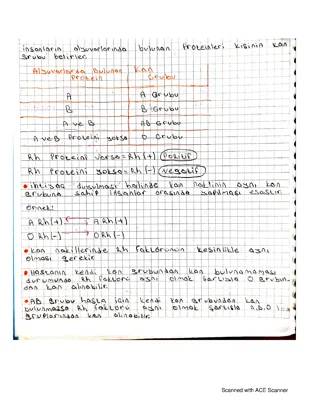 insanların alyuvarlarında bulunan Proteinleri kişinin kan
grubu belirler.
Alyuvarlarda Bulunan Protein | Kan Grubu
A | A Grubu
B | B Grubu
A ve B | AB Grubu
A ve B Proteini yoksa | 0 Grubu
Rh Proteini varsa = Rh(+) Pozitif
Rh Proteini yoksa = Rh(-) Negatif
• ihtiyaç duyulması halinde kan naklinin aynı kan
grubuna sahip insanlar arasında yapılması esastır.
örnek:
A Rh(+) A Rh(+)
0 Rh(-) 0 Rh(-)
• Kan nakillerinde Rh faktörünün kesinlikle aynı
olması gerekir.
• Hastanın kendi kan grubundan kan bulunamaması
durumunda Rh faktörü aynı olmak şartıyla 0 grubun-
dan kan alınabilir.
• AB Grubu hasta için kendi kan grubundan kan
bulunmazsa Rh faktörü aynı olmak şartıyla A.B.0
gruplarından kan alınabilir.
Scanned with ACE Scanner